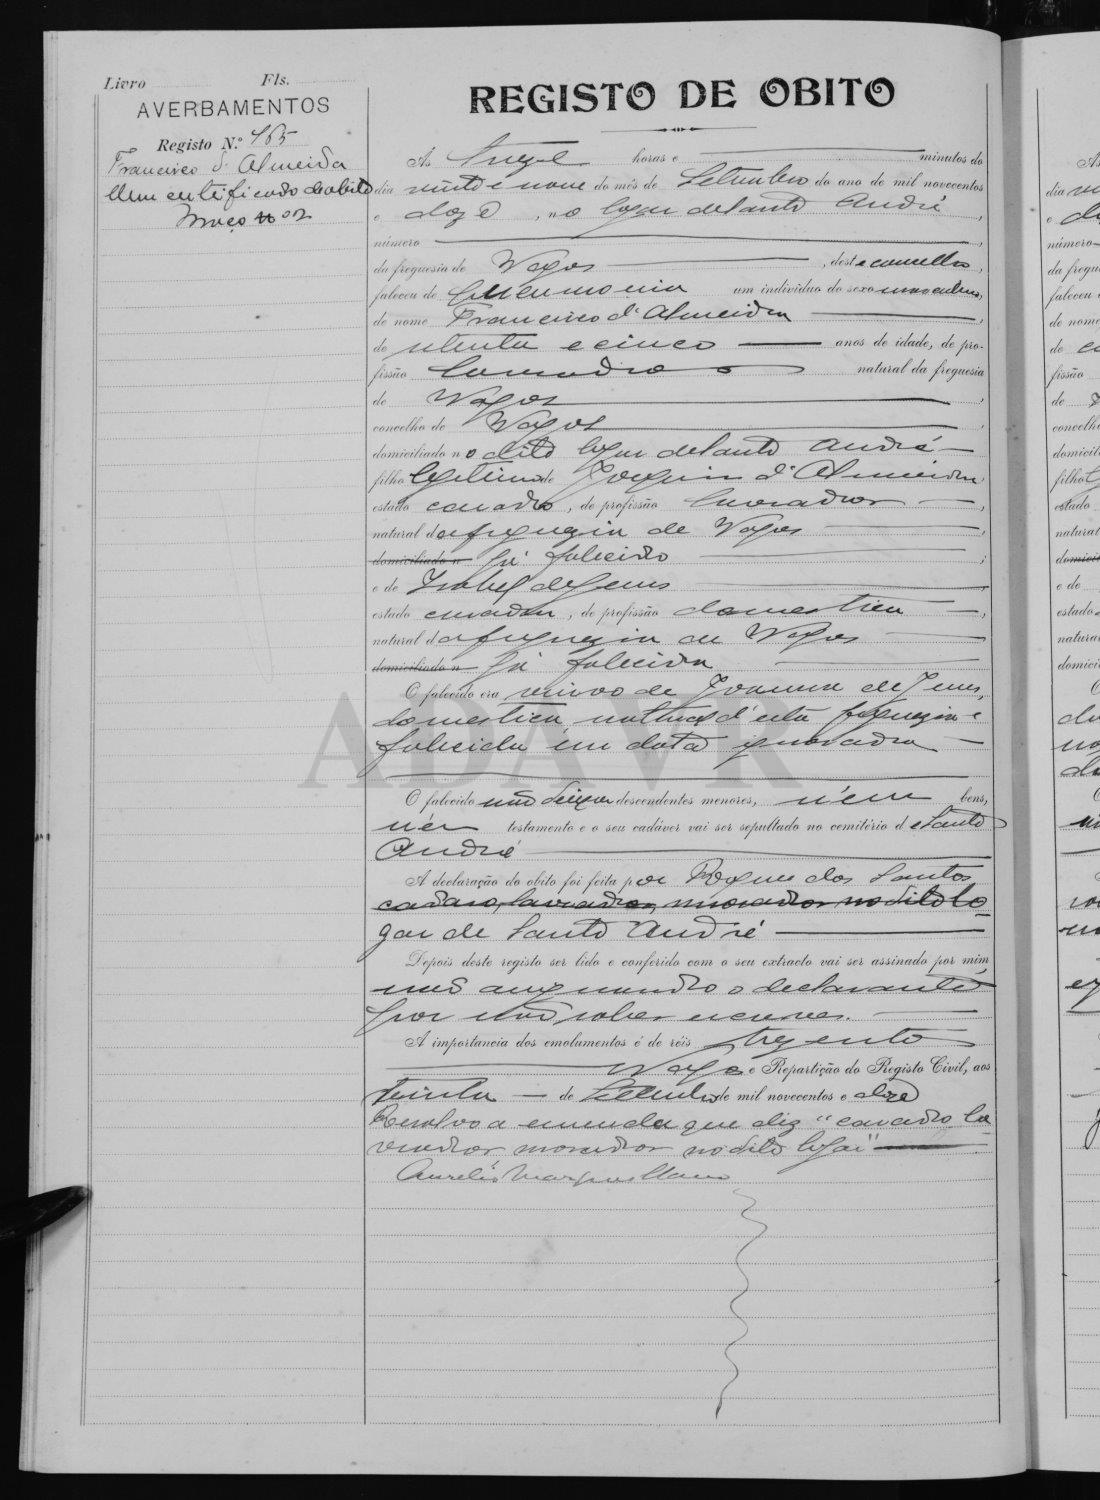 Livro Fls.
AVERBAMENTOS
Registo N.º 165
Francisco d'Almeida
Um certificado de obito
Maço nº 2
REGISTO DE OBITO
Ás treze horas e minutos do
dia vinte e nove do mês de Setembro do ano de mil novecentos
e doze, no logar de Santo André,
número
da freguesia de Vagos, deste concelho,
faleceu de um individuo do sexo masculino,
de nome Francisco d'Almeida,
de oitenta e cinco anos de idade, de pro-
fissão lavrador natural da freguesia
de Vagos,
concelho de Vagos,
domiciliado no dito logar de Santo André
filho legitimo de Joaquim d'Almeida,
estado casado, de profissão lavrador,
natural da freguezia de Vagos
domiciliado n já falecido;
e de Izabel de Jesus,
estado casada, de profissão domestica,
natural da freguezia de Vagos
domiciliado n já falecida
O falecido era viuvo de Joanna de Jesus,
domestica, natural d'esta freguezia e
falecida em data ignorada
O falecido não deixou descendentes menores, nem bens,
nem testamento e o seu cadáver vai ser sepultado no cemitério de Santo
André
A declaração do obito foi feita por Roque dos Santos
casado, lavrador, morador no dito lo-
gar de Santo André
Depois deste registo ser lido e conferido com o seu extracto vai ser assinado por mim
não assignando o declarante
por não saber escrever.
A importancia dos emolumentos é de réis trezentos
Vagos e Repartição do Registo Civil, aos
trinta de Setembro de mil novecentos e doze
Resalvo a emenda que diz "casado la-
vrador morador no dito logar"
Aurelio Marques Mano
ADAVR